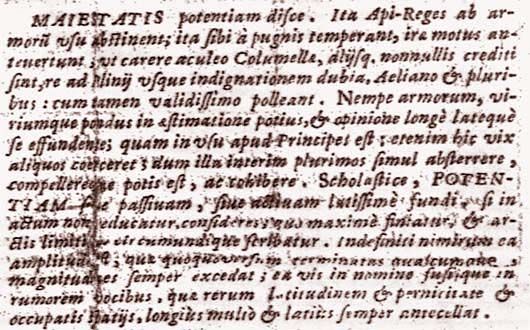 MAIESTATIS potentiam disce. Ita Api-Reges ab ar-
morū vsu abstinent; ita sibi à pugnis temperant, iræ motus an-
teuertunt; vt carere aculeo Columellæ, alijsq. nonnullis crediti
sint, re ad Plinij vsque indignationem dubia, Aeliano & pluri-
bus: cum tamen validissimo polleant. Nempe armorum, vi-
riumque pondus in æstimatione potius, & opinione longè latequè
se effundente; quam in vsu apud Principes est; etenim hic vix
aliquos coerceret; dum illa interim plurimos simul absterrere,
compellereque potis est, ac cohibere. Scholastice, POTEN-
TIAM siue passiuam, siue actiuam latissimè fundi, si in
actum non educatur, consideres; quæ maximè finiatur, & ar-
ctis limitibus circumundique scribatur. Indefiniti nimirum ea
amplitudo est, quæ quoquoversum terminatas quascumque
magnitudines semper excedat; ea vis in nomino fusisque in
rumorem vocibus, quæ rerum latitudinem & pernicitate &
occupatis spatijs, longius multò & latius semper antecellat.